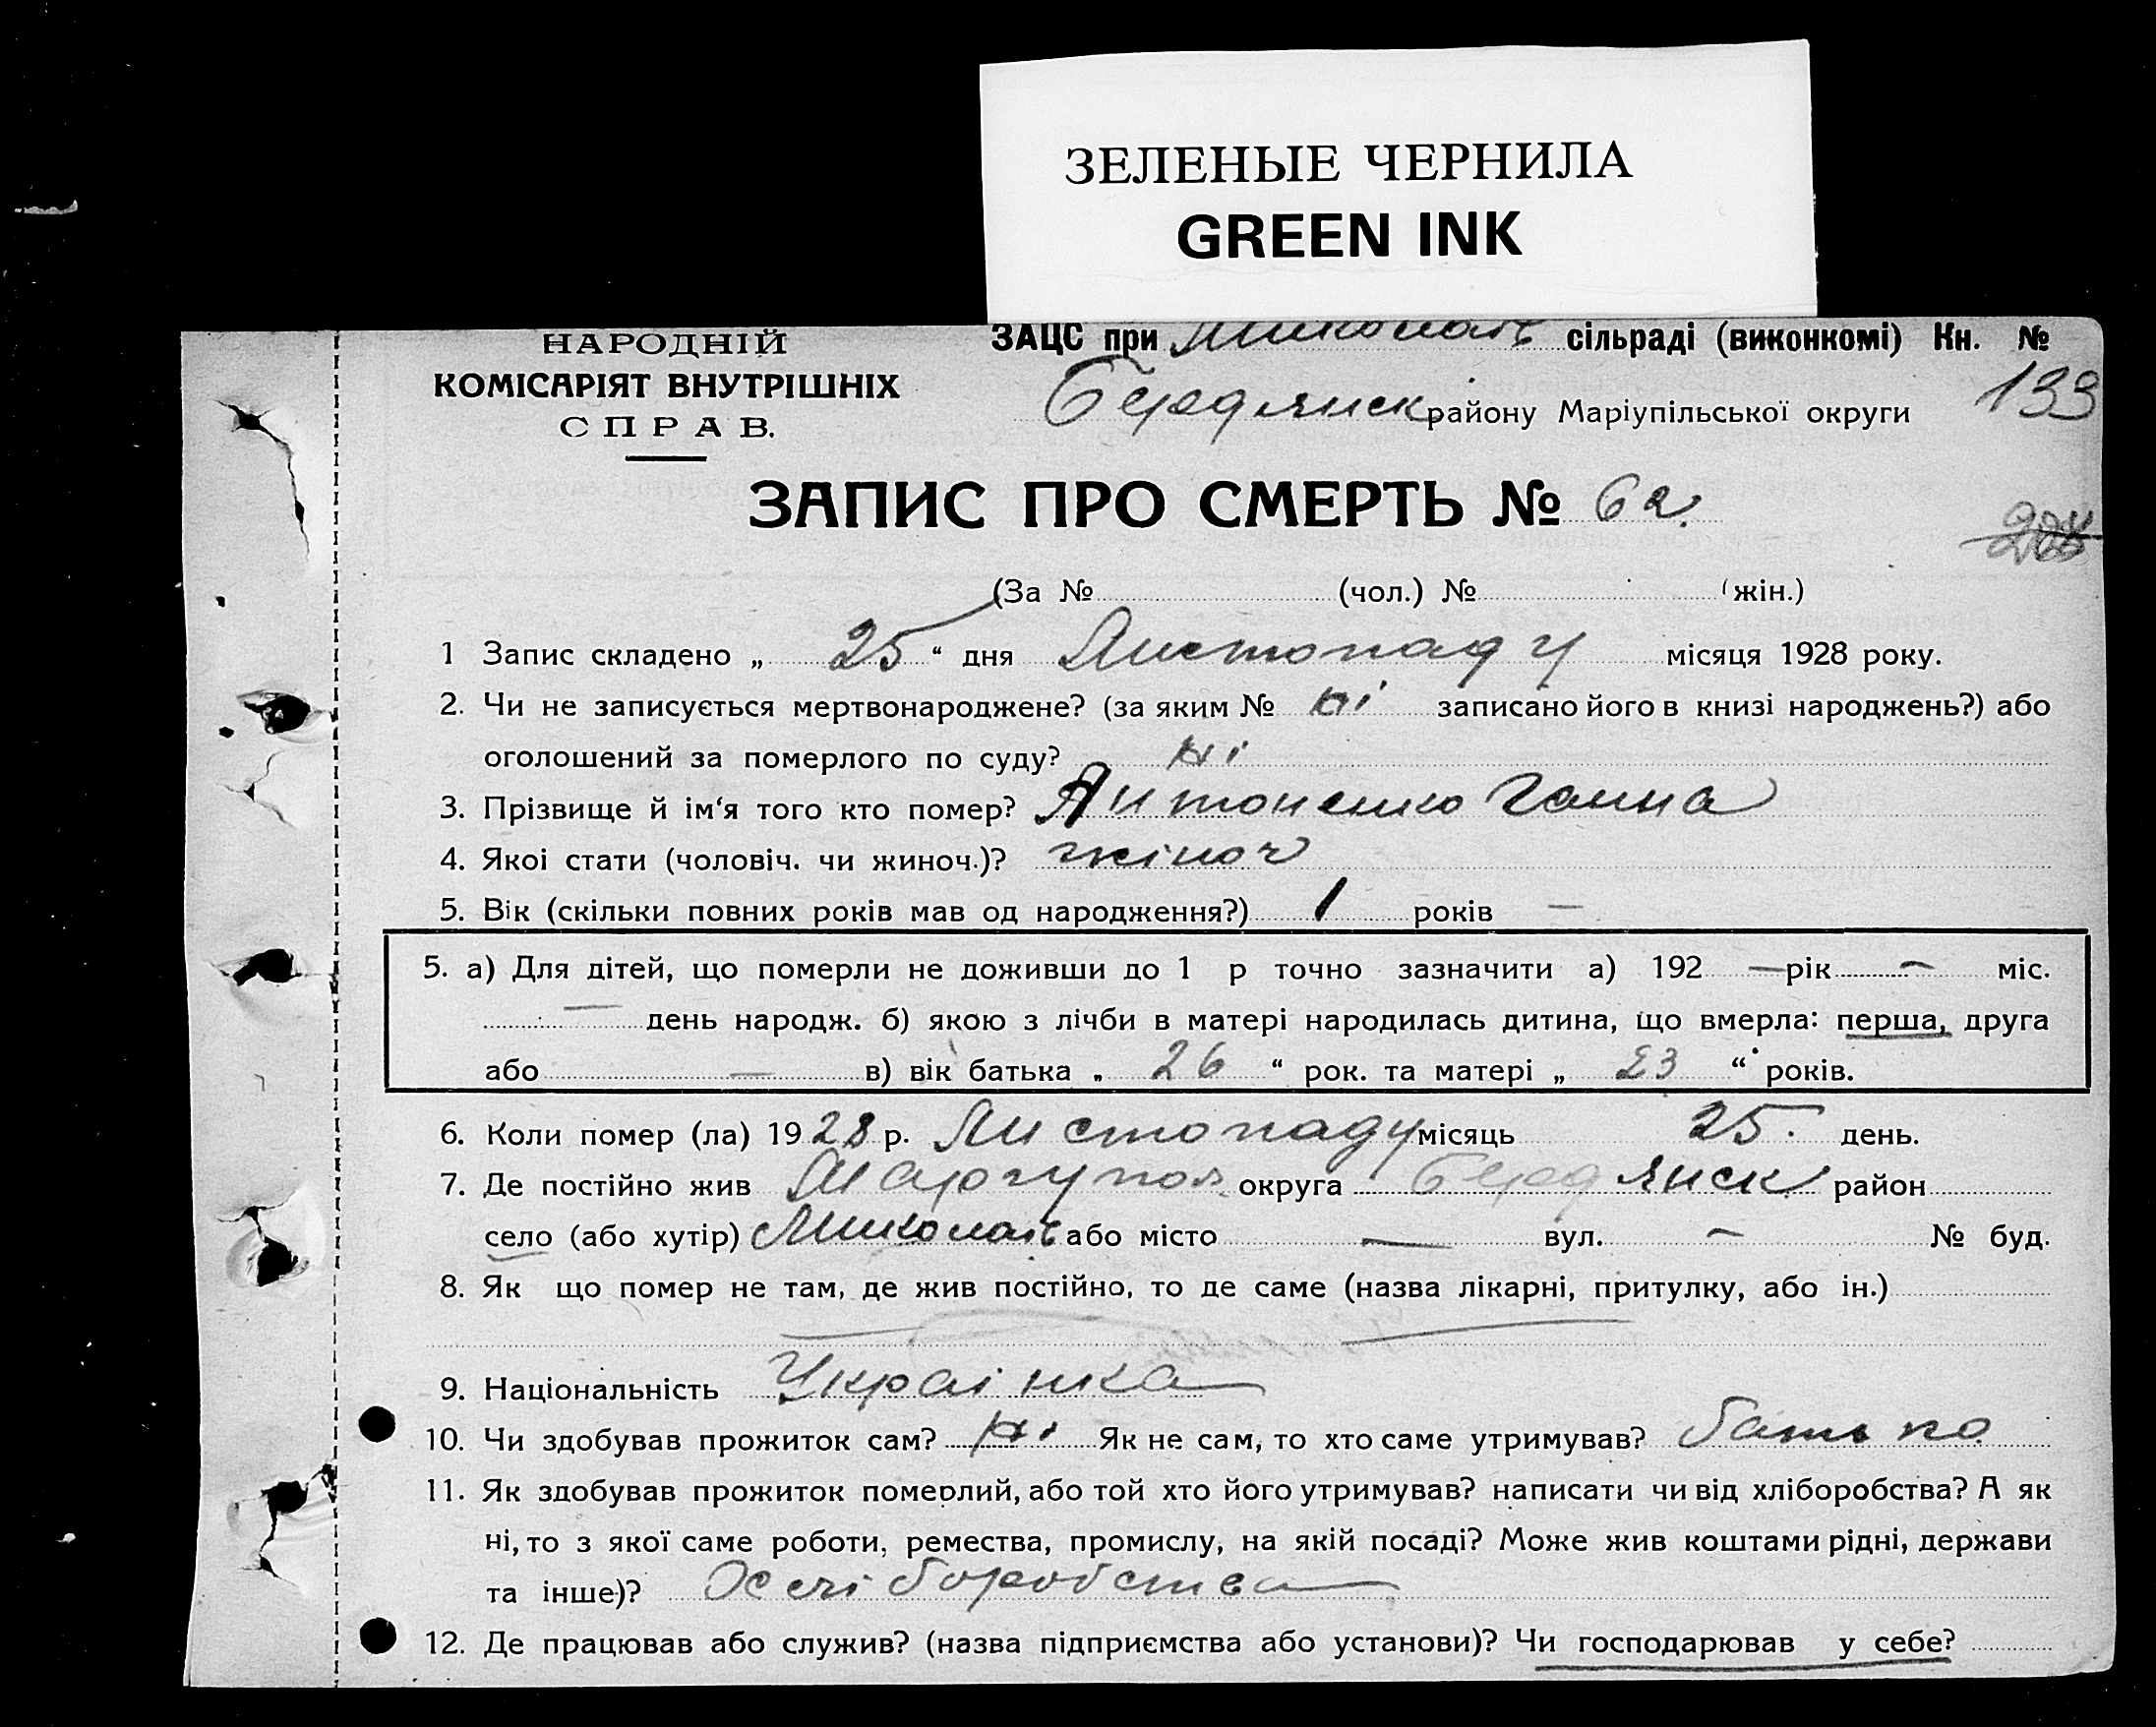 ЗЕЛЕНЫЕ ЧЕРНИЛА
GREEN INK
НАРОДНІЙ
КОМІСАРІЯТ ВНУТРІШНІХ
СПРАВ.
ЗАЦС при Миколаїв сільраді (виконкомі) Кн. №
Бердянск району Маріупільської округи 133
ЗАПИС ПРО СМЕРТЬ № 62.
(За № (чол.) № (жін.)
1 Запис складено „ 25 “ дня Листопаду місяця 1928 року.
2. Чи не записується мертвонароджене? (за яким № ні записано його в книзі народжень?) або
оголошений за померлого по суду? ні
3. Прізвище й ім‘я того кто помер? Антоненко Ганна
4. Якоі стати (чоловіч. чи жиноч.)? жіноч
5. Вік (скільки повних років мав од народження?) 1 років —
5. а) Для дітей, що померли не доживши до 1 р точно зазначити а) 192 — рік — міс.
— день народж. б) якою з лічби в матері народилась дитина, що вмерла: перша, друга
або — в) вік батька „ 26 “ рок. та матері „ 23 “ років.
6. Коли помер (ла) 1928 р. Листопаду місяць 25. день.
7. Де постійно жив Маріупол. округа Бердянск район
село (або хутір) Миколаїв або місто — вул. — № буд.
8. Як що помер не там, де жив постійно, то де саме (назва лікарні, притулку, або ін.)
9. Національність Украінка
10. Чи здобував прожиток сам? ні Як не сам, то хто саме утримував? батько
11. Як здобував прожиток померлий, або той хто його утримував? написати чи від хліборобства? А як
ні, то з якої саме роботи, ремества, промислу, на якій посаді? Може жив коштами рідні, держави
та інше)? Хліборобства
12. Де працював або служив? (назва підприємства або установи)? Чи господарював у себе?